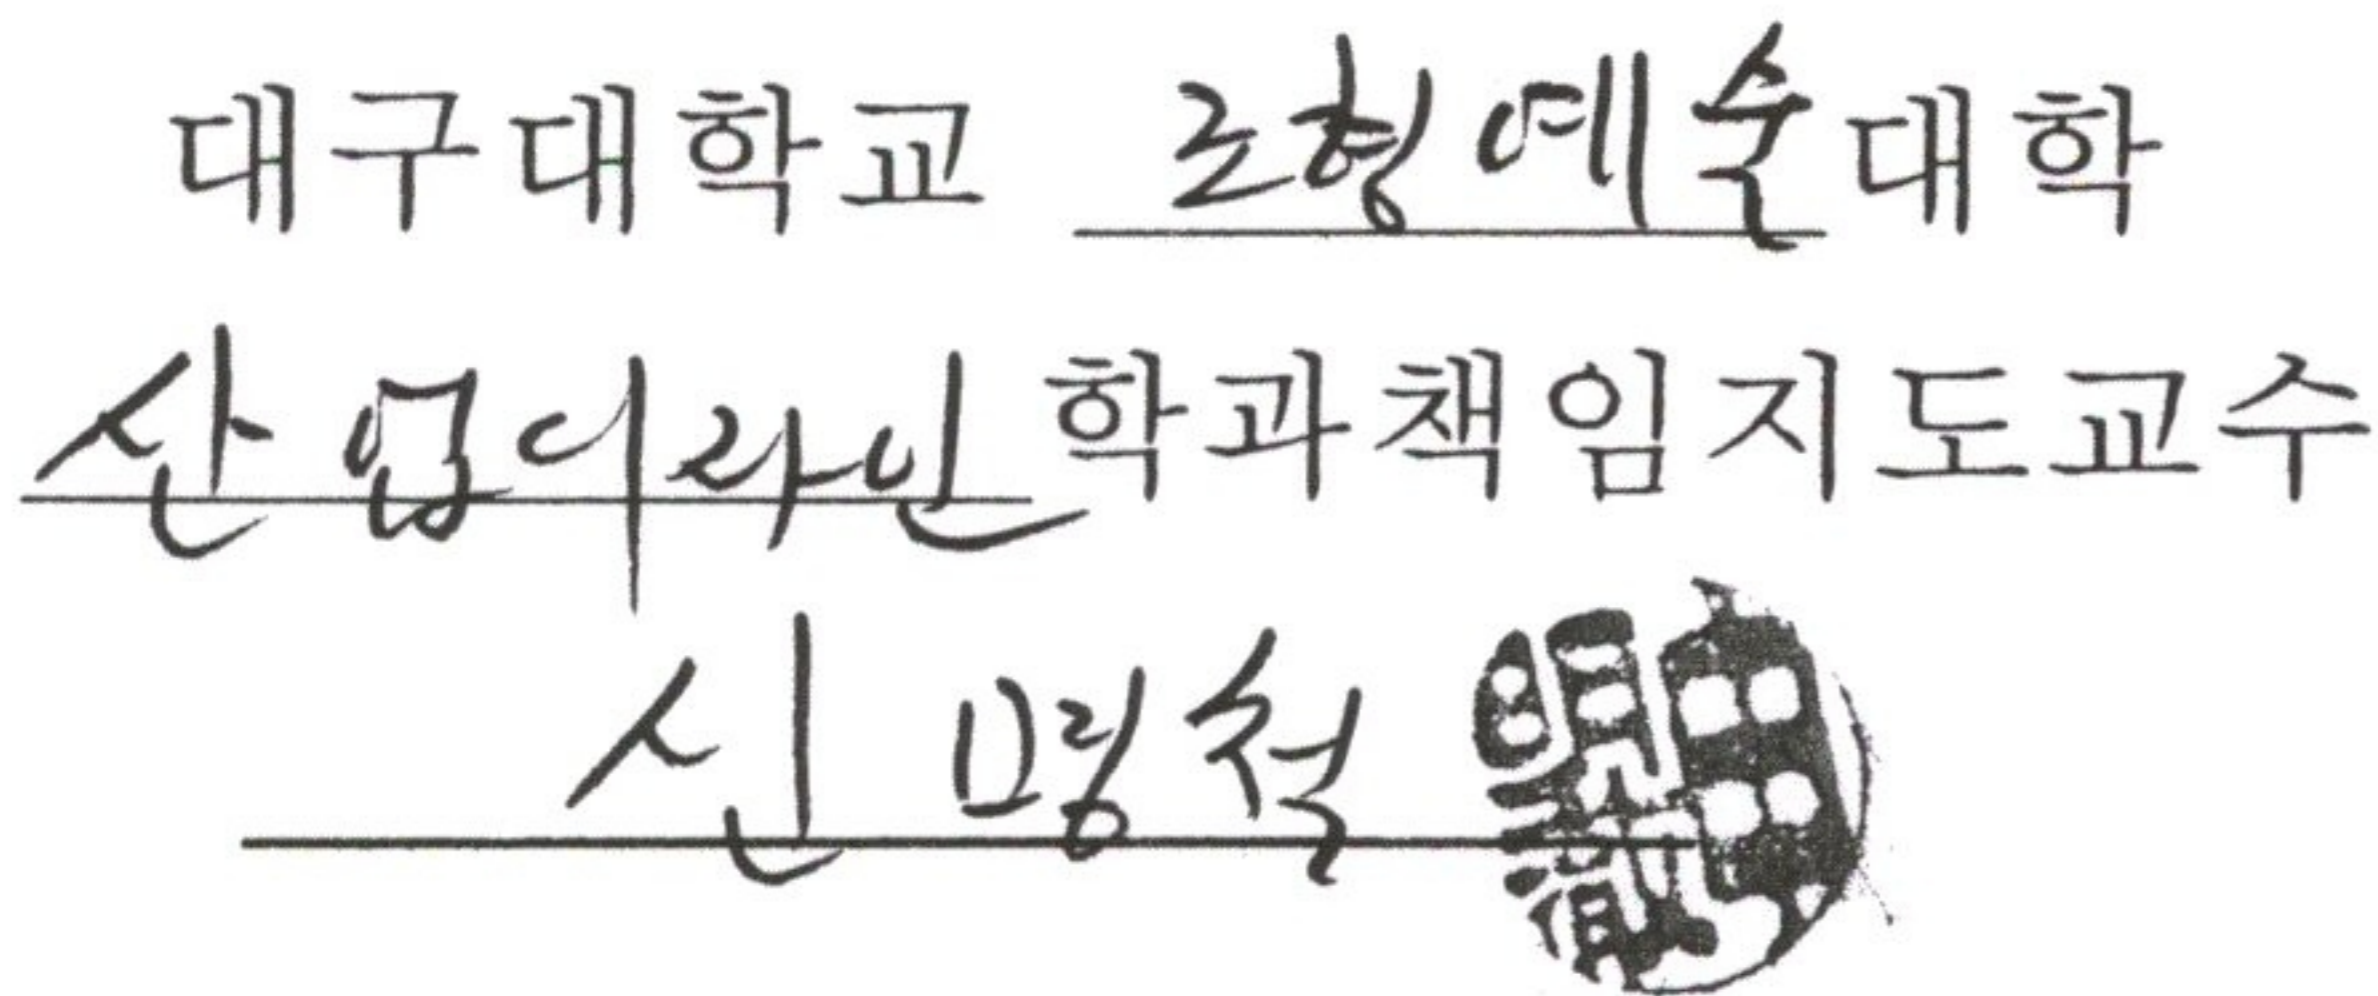 대구대학교 조형예술대학
산업디자인학과책임지도교수
신명철